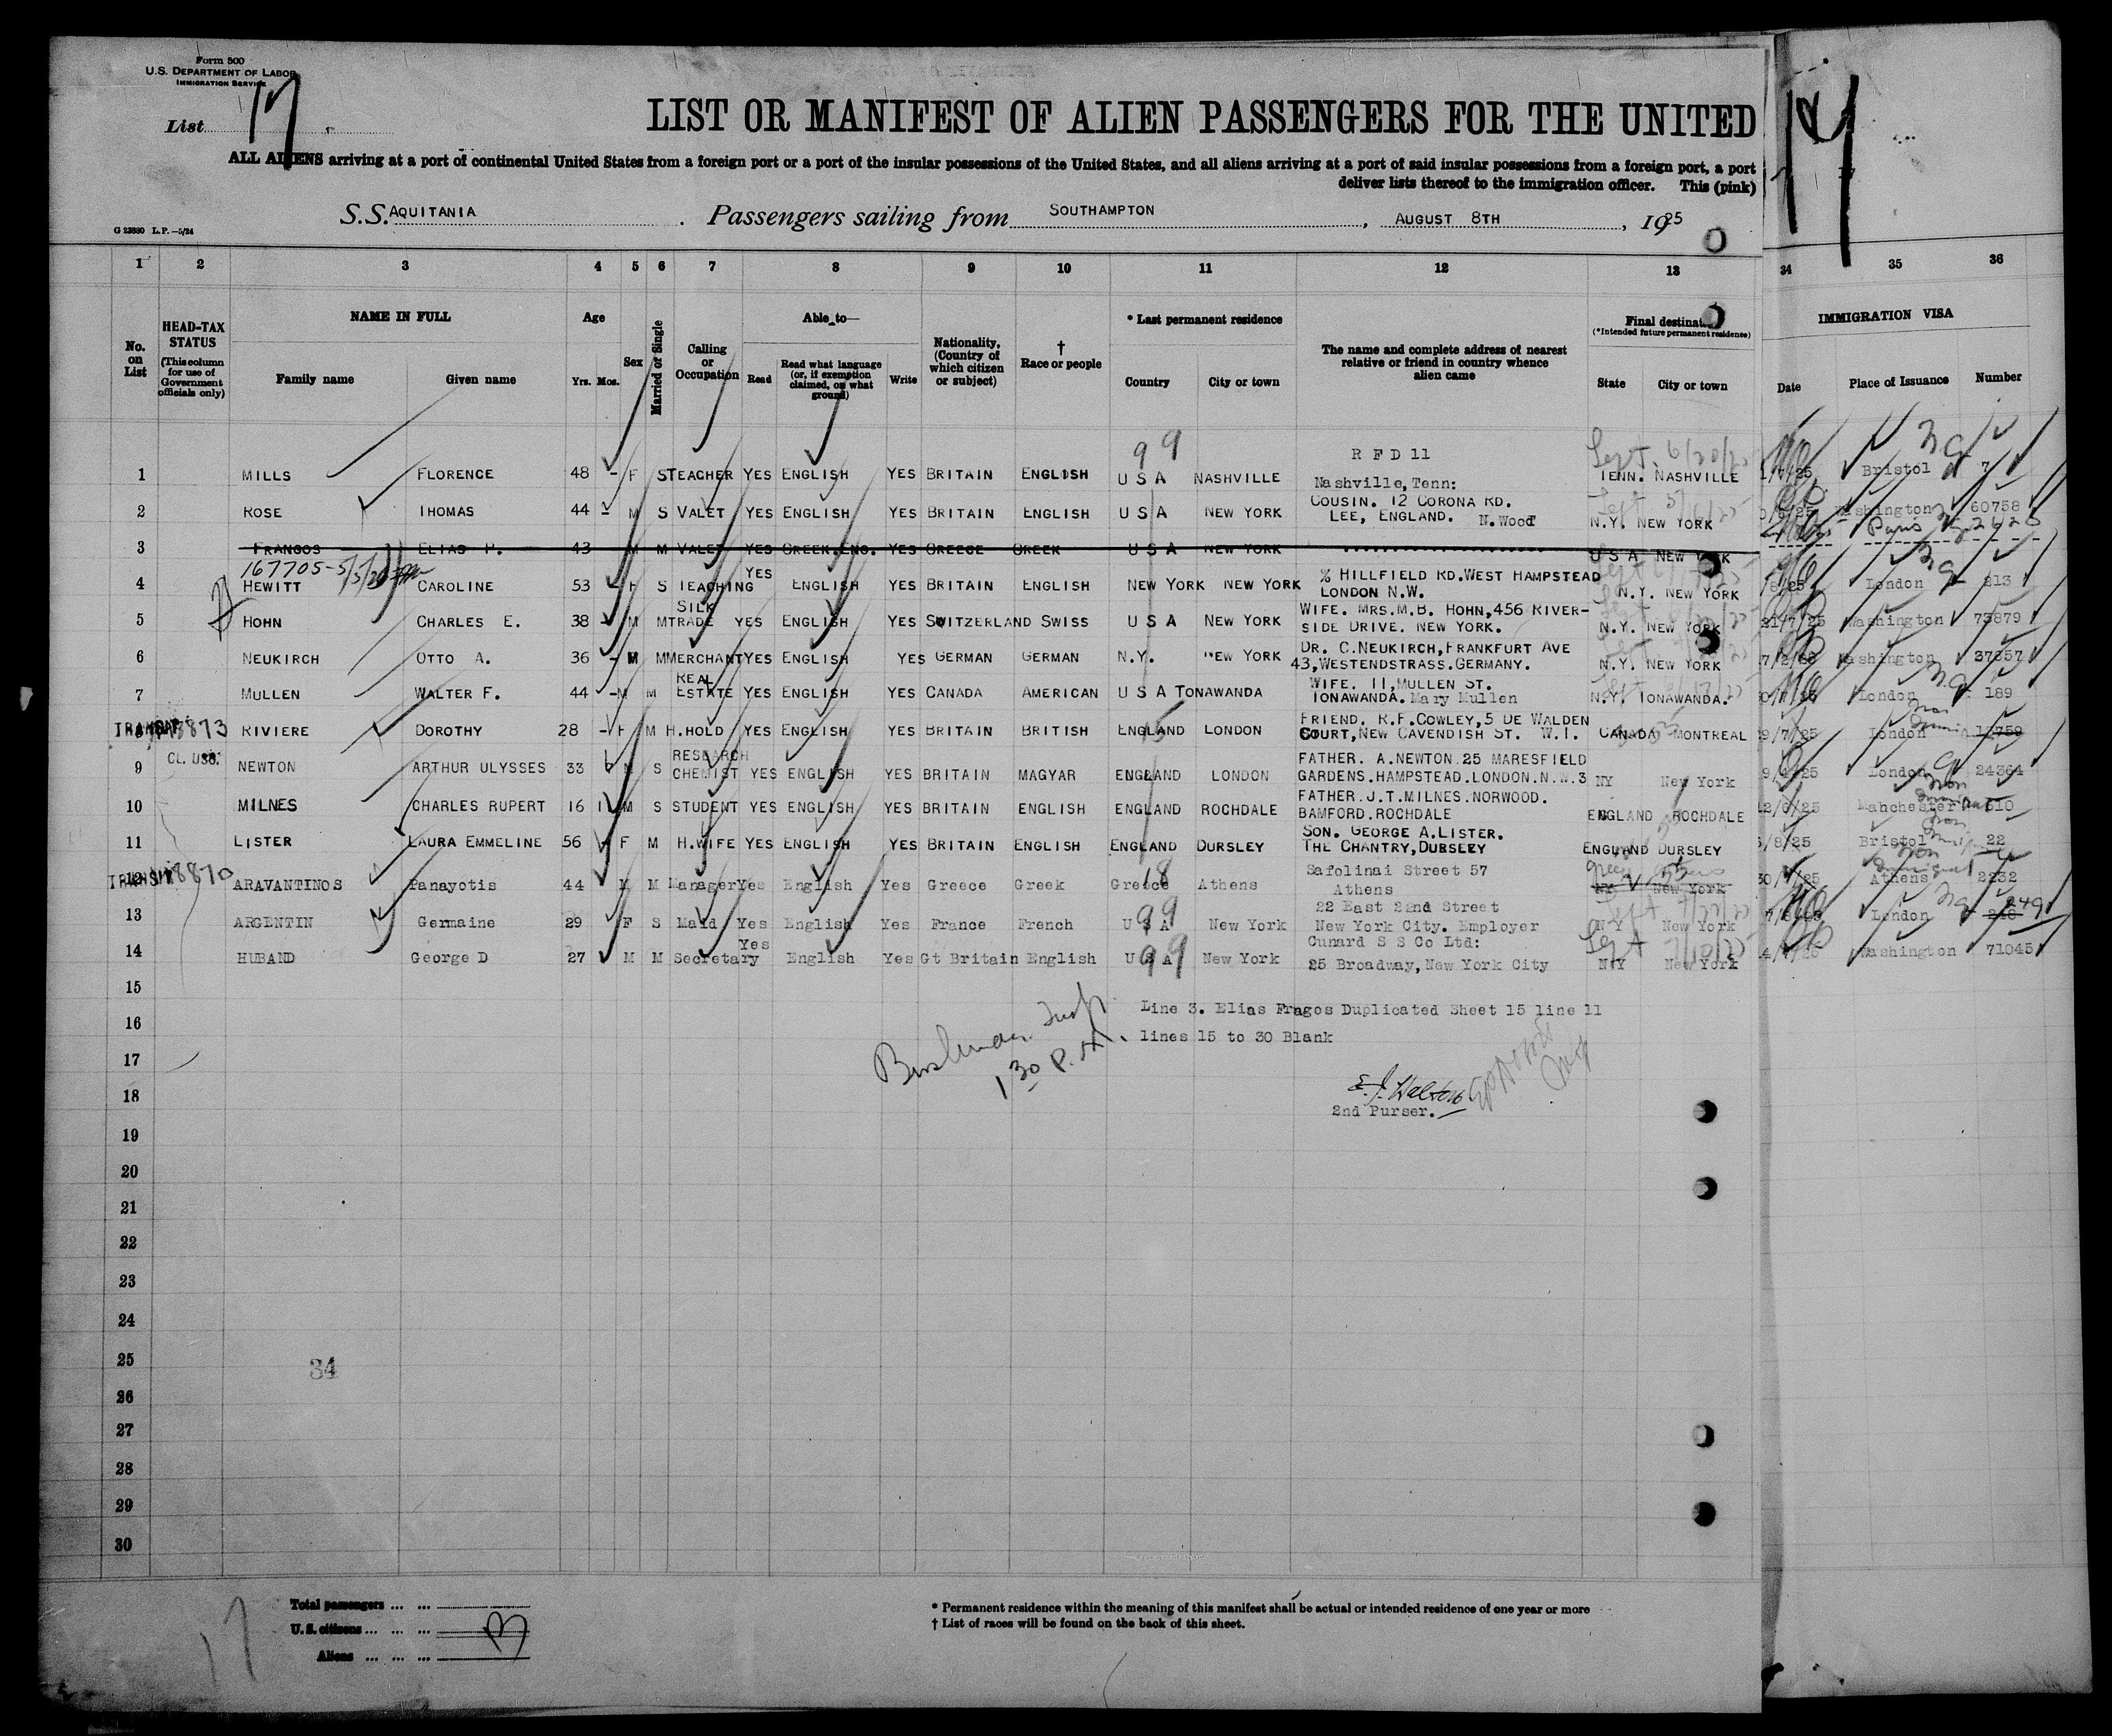 Form 500
U.S. DEPARTMENT OF LABOR
IMMIGRATION SERVICE
List 17
LIST OR MANIFEST OF ALIEN PASSENGERS FOR THE UNITED
ALL ALIENS arriving at a port of continental United States from a foreign port or a port of the insular possessions of the United States, and all aliens arriving at a port of said insular possessions from a foreign port, a port
deliver lists thereof to the immigration officer. This (pink)
S.S. AQUITANIA . Passengers sailing from SOUTHAMPTON , AUGUST 8TH , 1925
G 23880 L.P.—5/24
1 2 3 4 5 6 7 8 9 10 11 12 13 34 35 36
No. on List
HEAD-TAX STATUS (This column for use of Government officials only)
NAME IN FULL Family name Given name
Age Yrs. Mos.
Sex
Married or Single
Calling or Occupation
Able to— Read Read what language (or, if exemption claimed, on what ground) Write
Nationality. (Country of which citizen or subject)
† Race or people
* Last permanent residence Country City or town
The name and complete address of nearest relative or friend in country whence alien came
Final destination (*Intended future permanent residence) State City or town
IMMIGRATION VISA Date Place of Issuance Number
1 MILLS FLORENCE 48 - F S TEACHER YES ENGLISH YES BRITAIN ENGLISH U S A NASHVILLE R F D 11 Nashville, Tenn: TENN. NASHVILLE 1/7/25 Bristol 7
2 ROSE THOMAS 44 - M S VALET YES ENGLISH YES BRITAIN ENGLISH U S A NEW YORK COUSIN. 12 CORONA RD. LEE, ENGLAND. N.Wood N.Y. NEW YORK Washington 60758
3 FRANGOS ELIAS P. 43 M M VALET YES GREEK.ENG. YES GREECE GREEK U S A NEW YORK U S A NEW YORK Paris
167705-5/5/26
4 HEWITT CAROLINE 53 - F S TEACHING YES ENGLISH YES BRITAIN ENGLISH NEW YORK NEW YORK % HILLFIELD RD.WEST HAMPSTEAD LONDON N.W. N.Y. NEW YORK /8/25 London 813
5 HOHN CHARLES E. 38 - M M SILK TRADE YES ENGLISH YES SWITZERLAND SWISS U S A NEW YORK WIFE. MRS.M.B. HOHN,456 RIVER-SIDE DRIVE. NEW YORK. N.Y. NEW YORK 21/7/25 Washington 73879
6 NEUKIRCH OTTO A. 36 - M M MERCHANT YES ENGLISH YES GERMAN GERMAN N.Y. NEW YORK DR. C.NEUKIRCH,FRANKFURT AVE 43,WESTENDSTRASS.GERMANY. N.Y. NEW YORK Washington 37357
7 MULLEN WALTER F. 44 - M M REAL ESTATE YES ENGLISH YES CANADA AMERICAN U S A TONAWANDA WIFE. 11,MULLEN ST. TONAWANDA. Mary Mullen N.Y. TONAWANDA. London 189
TRANSIT RIVIERE DOROTHY 28 - F M H.HOLD YES ENGLISH YES BRITAIN BRITISH ENGLAND LONDON FRIEND. R.F.COWLEY,5 DE WALDEN COURT,NEW CAVENDISH ST. W.1. CANADA MONTREAL 9/7/25 London 12759
9 CL. USS. NEWTON ARTHUR ULYSSES 33 M S RESEARCH CHEMIST YES ENGLISH YES BRITAIN MAGYAR ENGLAND LONDON FATHER. A.NEWTON.25 MARESFIELD GARDENS.HAMPSTEAD.LONDON.N.W.3 NY New York London 24364
10 MILNES CHARLES RUPERT 16 1 M S STUDENT YES ENGLISH YES BRITAIN ENGLISH ENGLAND ROCHDALE FATHER.J.T.MILNES.NORWOOD. BAMFORD.ROCHDALE ENGLAND ROCHDALE Manchester 510
11 LISTER LAURA EMMELINE 56 - F M H.WIFE YES ENGLISH YES BRITAIN ENGLISH ENGLAND DURSLEY SON. GEORGE A.LISTER. THE CHANTRY,DURSLEY ENGLAND DURSLEY /8/25 Bristol 22
TRANSIT 12 ARAVANTINOS Panayotis 44 M M Manager Yes English Yes Greece Greek Greece Athens Safolinai Street 57 Athens NY New York Athens 2232
13 ARGENTIN Germaine 29 F S Maid Yes English Yes France French U S A New York 22 East 22nd Street New York City. Employer NY New York London 248 249
14 HUBAND George D 27 M M Secretary Yes English Yes Gt Britain English U S A New York Cunard S S Co Ltd: 25 Broadway,New York City NY New York Washington 71045
15
16
17
18
19
20
21
22
23
24
25
26
27
28
29
30
Line 3. Elias Fragos Duplicated Sheet 15 line 11
lines 15 to 30 Blank
1 30 P.M.
2nd Purser.
34
Total passengers ... ...
U.S. citizens ... ... ...
Aliens ... ... ...
13
17
* Permanent residence within the meaning of this manifest shall be actual or intended residence of one year or more
† List of races will be found on the back of this sheet.